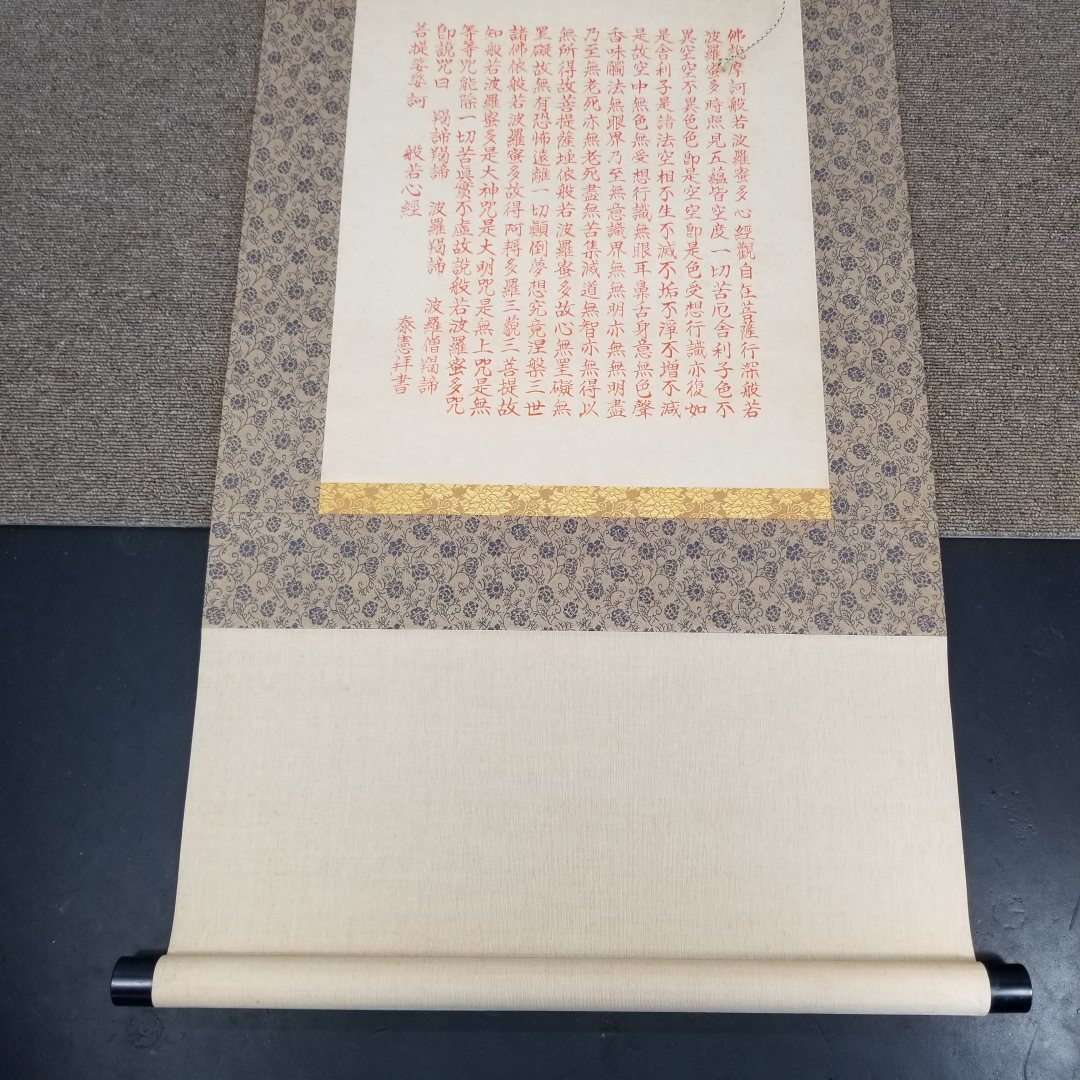 佛說摩訶般若波羅蜜多心經觀自在菩薩行深般若
波羅蜜多時照見五蘊皆空度一切苦厄舍利子色不
異空空不異色色卽是空空卽是色受想行識亦復如
是舍利子是諸法空相不生不滅不垢不淨不增不減
是故空中無色無受想行識無眼耳鼻舌身意無色聲
香味觸法無眼界乃至無意識界無無明亦無無明盡
乃至無老死亦無老死盡無苦集滅道無智亦無得以
無所得故菩提薩埵依般若波羅蜜多故心無罣礙無
罣礙故無有恐怖遠離一切顚倒夢想究竟涅槃三世
諸佛依般若波羅蜜多故得阿耨多羅三藐三菩提故
知般若波羅蜜多是大神咒是大明咒是無上咒是無
等等咒能除一切苦眞實不虛故說般若波羅蜜多咒
卽說咒曰 羯諦羯諦 波羅羯諦 波羅僧羯諦
菩提娑婆訶 般若心經 泰憲拜書